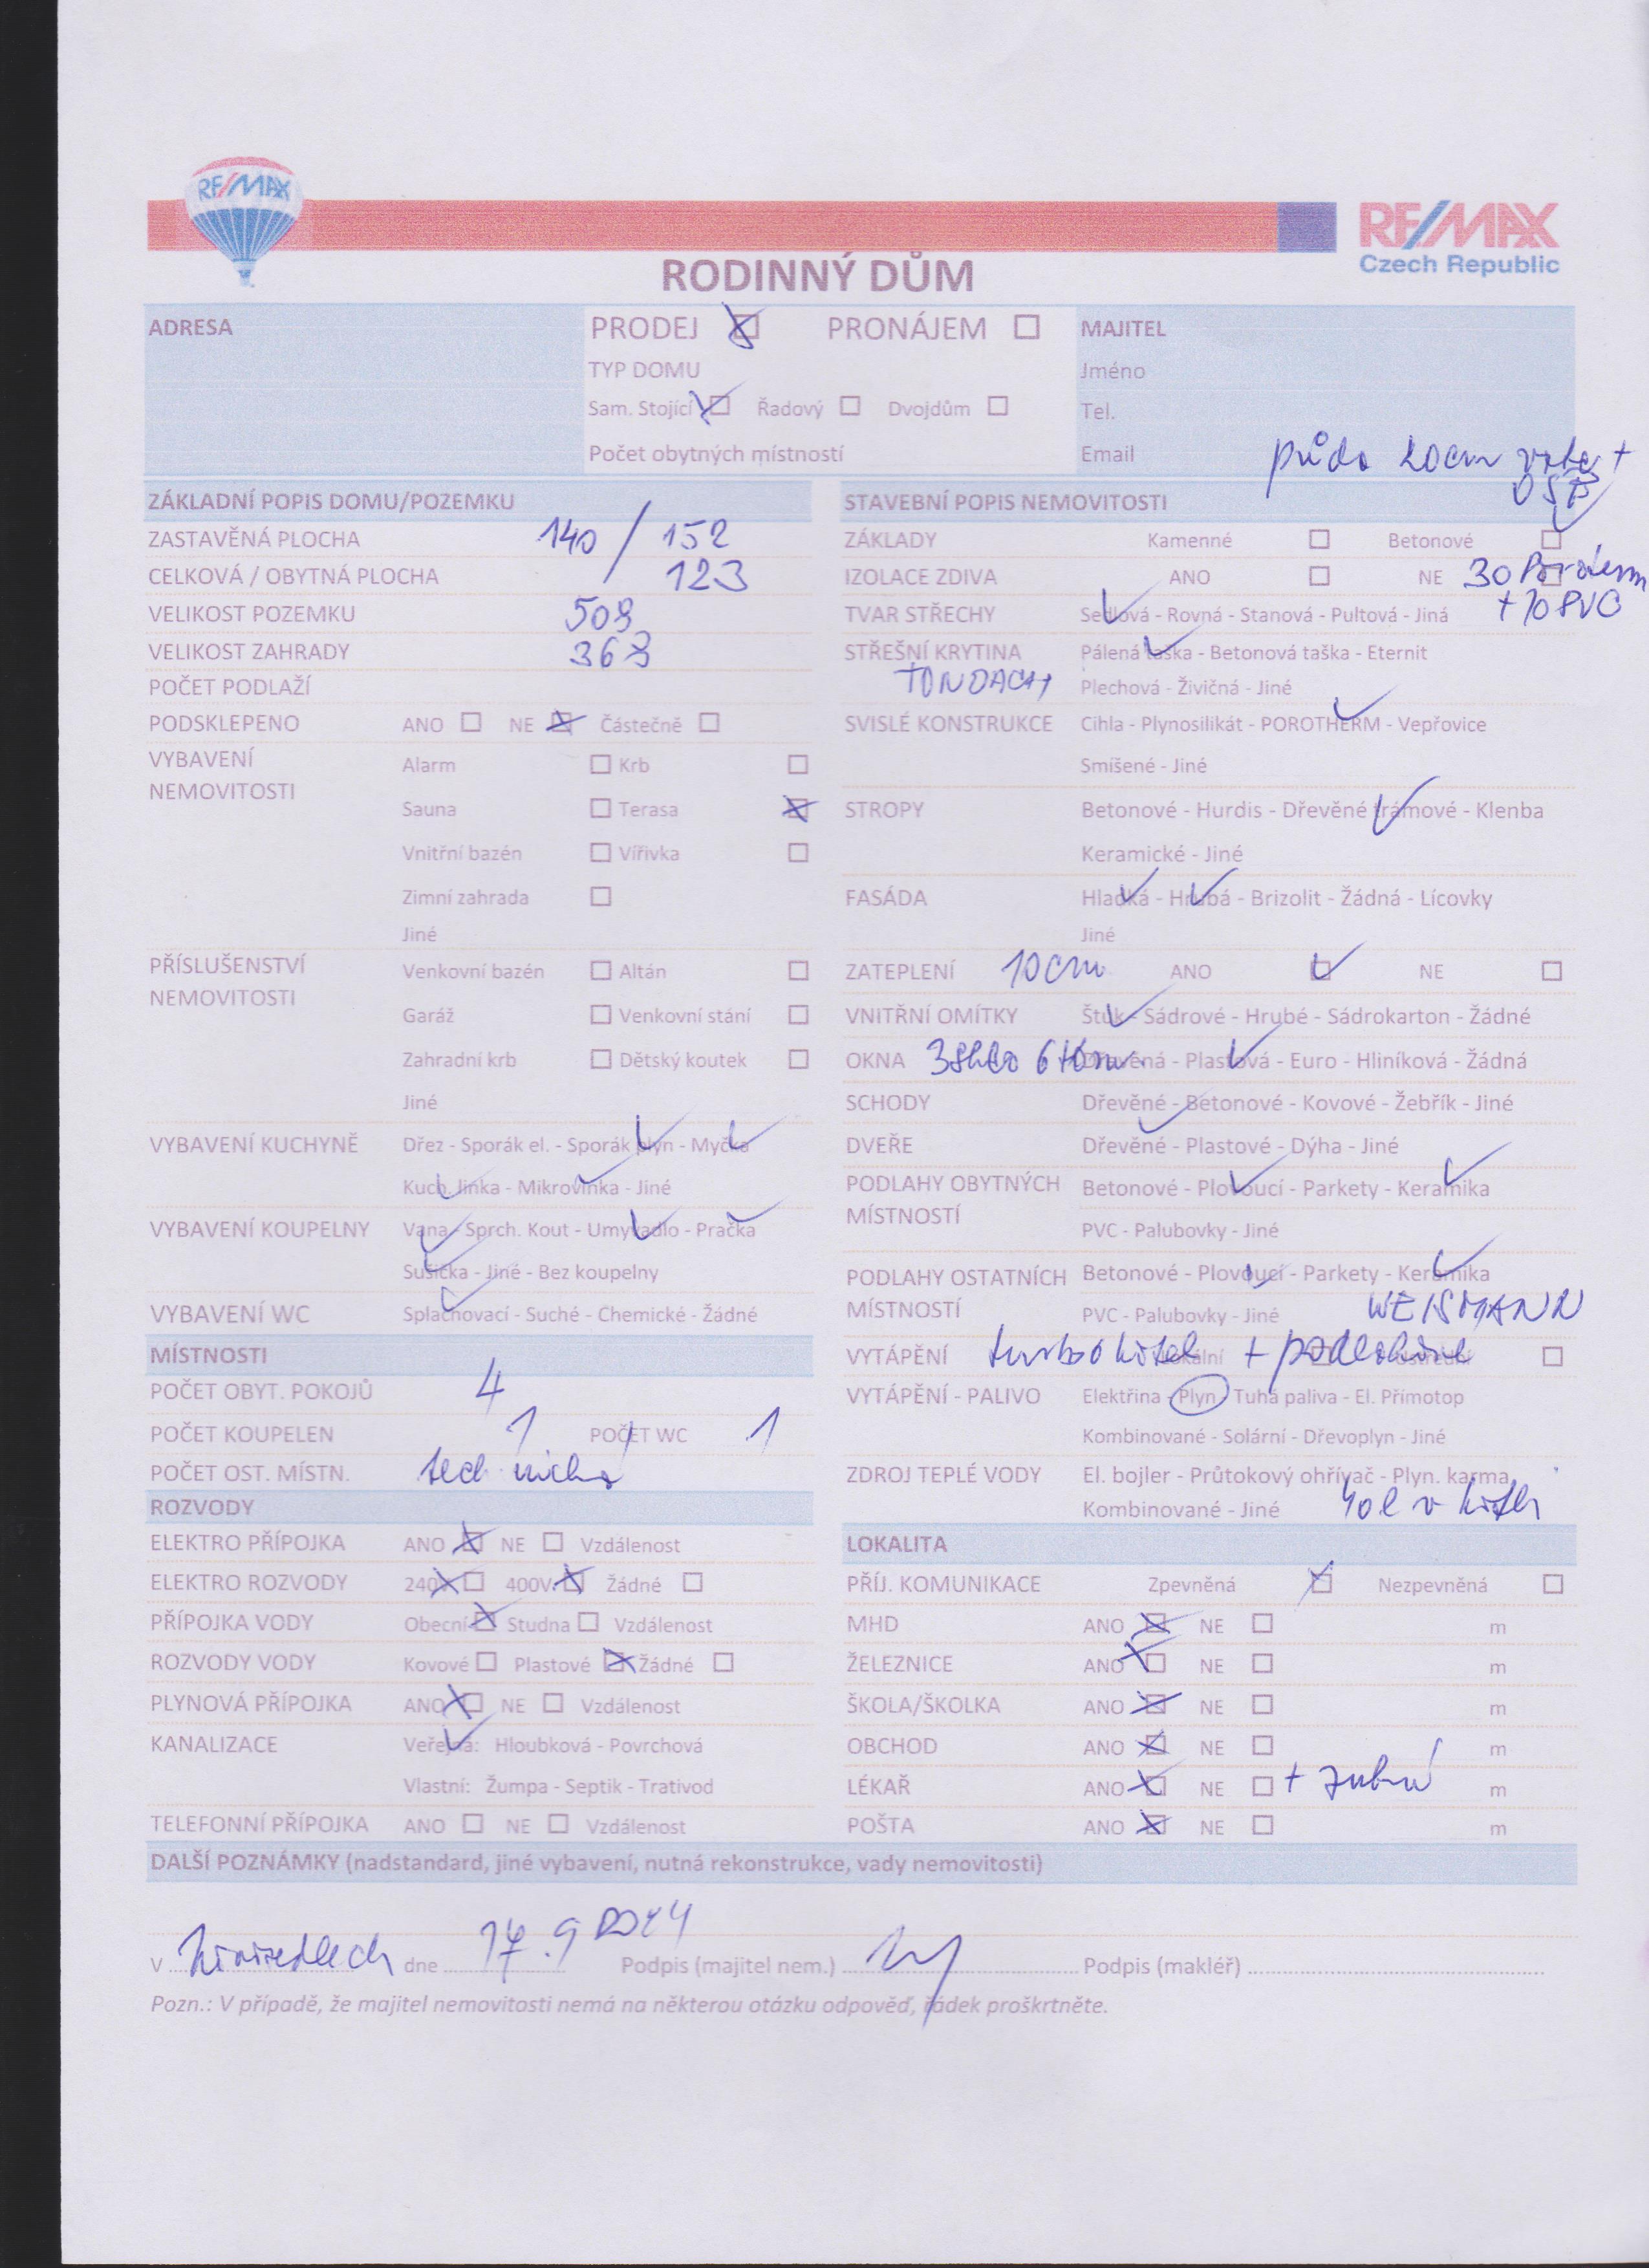 RE/MAX
RE/MAX
Czech Republic
RODINNÝ DŮM
ADRESA
PRODEJ PRONÁJEM
TYP DOMU
Sam. Stojící Řadový Dvojdům
Počet obytných místností
MAJITEL
Jméno
Tel.
Email
půda 20cm +
OSB
ZÁKLADNÍ POPIS DOMU/POZEMKU
ZASTAVĚNÁ PLOCHA 140 / 152
CELKOVÁ / OBYTNÁ PLOCHA 123
VELIKOST POZEMKU 509
VELIKOST ZAHRADY 363
POČET PODLAŽÍ
PODSKLEPENO ANO NE Částečně
VYBAVENÍ NEMOVITOSTI Alarm Krb
Sauna Terasa
Vnitřní bazén Vířivka
Zimní zahrada
Jiné
PŘÍSLUŠENSTVÍ NEMOVITOSTI Venkovní bazén Altán
Garáž Venkovní stání
Zahradní krb Dětský koutek
Jiné
VYBAVENÍ KUCHYNĚ Dřez - Sporák el. - Sporák plyn - Myčka
Kuch. linka - Mikrovlnka - Jiné
VYBAVENÍ KOUPELNY Vana - Sprch. Kout - Umyvadlo - Pračka
Sušička - Jiné - Bez koupelny
VYBAVENÍ WC Splachovací - Suché - Chemické - Žádné
MÍSTNOSTI
POČET OBYT. POKOJŮ 4
POČET KOUPELEN 1 POČET WC 1
POČET OST. MÍSTN. tech.
ROZVODY
ELEKTRO PŘÍPOJKA ANO NE Vzdálenost
ELEKTRO ROZVODY 240V 400V Žádné
PŘÍPOJKA VODY Obecní Studna Vzdálenost
ROZVODY VODY Kovové Plastové Žádné
PLYNOVÁ PŘÍPOJKA ANO NE Vzdálenost
KANALIZACE Veřejná: Hloubková - Povrchová
Vlastní: Žumpa - Septik - Trativod
TELEFONNÍ PŘÍPOJKA ANO NE Vzdálenost
STAVEBNÍ POPIS NEMOVITOSTI
ZÁKLADY Kamenné Betonové
IZOLACE ZDIVA ANO NE 30 Porotherm
+ 10 PVC
TVAR STŘECHY Sedlová - Rovná - Stanová - Pultová - Jiná
STŘEŠNÍ KRYTINA Pálená taška - Betonová taška - Eternit
TONDACH Plechová - Živičná - Jiné
SVISLÉ KONSTRUKCE Cihla - Plynosilikát - POROTHERM - Vepřovice
Smíšené - Jiné
STROPY Betonové - Hurdis - Dřevěné trámové - Klenba
Keramické - Jiné
FASÁDA Hladká - Hrubá - Brizolit - Žádná - Lícovky
Jiné
ZATEPLENÍ 10cm ANO NE
VNITŘNÍ OMÍTKY Štuk - Sádrové - Hrubé - Sádrokarton - Žádné
OKNA 3sklo 6 kom. Dřevěná - Plastová - Euro - Hliníková - Žádná
SCHODY Dřevěné - Betonové - Kovové - Žebřík - Jiné
DVEŘE Dřevěné - Plastové - Dýha - Jiné
PODLAHY OBYTNÝCH MÍSTNOSTÍ Betonové - Plovoucí - Parkety - Keramika
PVC - Palubovky - Jiné
PODLAHY OSTATNÍCH MÍSTNOSTÍ Betonové - Plovoucí - Parkety - Keramika
PVC - Palubovky - Jiné WEISMANN
VYTÁPĚNÍ turbo kotel + podlahové
VYTÁPĚNÍ - PALIVO Elektřina - Plyn - Tuhá paliva - El. Přímotop
Kombinované - Solární - Dřevoplyn - Jiné
ZDROJ TEPLÉ VODY El. bojler - Průtokový ohřívač - Plyn. karma
Kombinované - Jiné 40l v kotli
LOKALITA
PŘÍJ. KOMUNIKACE Zpevněná Nezpevněná
MHD ANO NE m
ŽELEZNICE ANO NE m
ŠKOLA/ŠKOLKA ANO NE m
OBCHOD ANO NE m
LÉKAŘ ANO NE + zubní m
POŠTA ANO NE m
DALŠÍ POZNÁMKY (nadstandard, jiné vybavení, nutná rekonstrukce, vady nemovitosti)
V dne 17.9 2024 Podpis (majitel nem.) Podpis (makléř)
Pozn.: V případě, že majitel nemovitosti nemá na některou otázku odpověď, řádek proškrtněte.